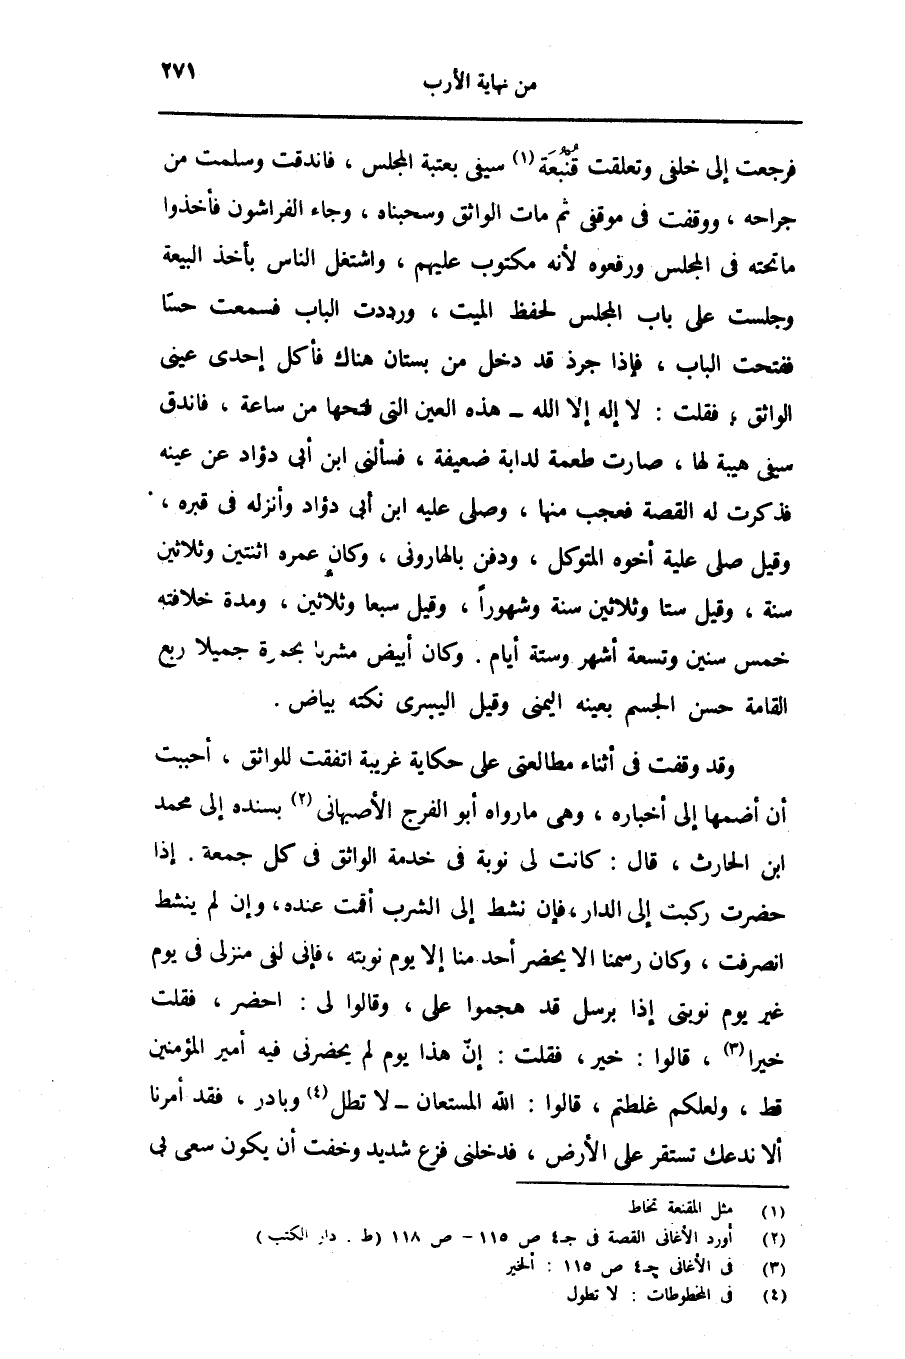 من نهاية الأرب
٢٧١
فرجعت إلى خلفى وتعلقت قُنْبُعَة (١) سيفى بعتبة المجلس ، فاندقت وسلمت من
جراحه ، ووقفت فى موقفى ثم مات الواثق وسحبناه ، وجاء الفراشون فأخذوا
ماتحته فى المجلس ورفعوه لأنه مكتوب عليهم ، واشتغل الناس بأخذ البيعة
وجلست على باب المجلس لحفظ الميت ، ورددت الباب فسمعت حسّا
ففتحت الباب ، فإذا جرذ قد دخل من بستان هناك فأكل إحدى عينى
الواثق ، فقلت : لا إله إلا الله ــ هذه العين التى فتحها من ساعة ، فاندق
سيفى هيبة لها ، صارت طعمة لدابة ضعيفة ، فسألنى ابن أبى دؤاد عن عينه
فذكرت له القصة فعجب منها ، وصلى عليه ابن أبى دؤاد وأنزله فى قبره ،
وقيل صلى علية أخوه المتوكل ، ودفن بالهارونى ، وكان عمره اثنتين وثلاثين
سنة ، وقيل ستا وثلاثين سنة وشهوراً ، وقيل سبعا وثلاثين ، ومدة خلافته
خمس سنين وتسعة أشهر وستة أيام . وكان أبيض مشربا بحمرة جميلا ربع
القامة حسن الجسم بعينه اليمنى وقيل اليسرى نكته بياض .
وقد وقفت فى أثناء مطالعتى على حكاية غريبة اتفقت للواثق ، أحببت
أن أضمها إلى أخباره ، وهى مارواه أبو الفرج الأصبهانى (٢) بسنده إلى محمد
ابن الحارث ، قال : كانت لى نوبة فى خدمة الواثق فى كل جمعة . إذا
حضرت ركبت إلى الدار ، فإن نشط إلى الشرب أقمت عنده ، وإن لم ينشط
انصرفت ، وكان رسمنا الا يحضر أحد منا إلا يوم نوبته ، فإنى لفى منزلى فى يوم
غير يوم نوبتى إذا برسل قد هجموا على ، وقالوا لى : احضر ، فقلت
خيرا (٣) ، قالوا : خير ، فقلت : إنّ هذا يوم لم يحضرنى فيه أمير المؤمنين
قط ، ولعلكم غلطتم ، قالوا : الله المستعان ــ لا تطل (٤) وبادر ، فقد أمرنا
ألا ندعك تستقر على الأرض ، فدخلنى فزع شديد وخفت أن يكون سعى بى
(١) مثل المقنعة تخاط
(٢) أورد الأغانى القصة فى جـ٤ ص ١١٥ - ص ١١٨ (ط . دار الكتب )
(٣) فى الأغانى جـ٤ ص ١١٥ : ألخير
(٤) فى المخطوطات : لا تطول